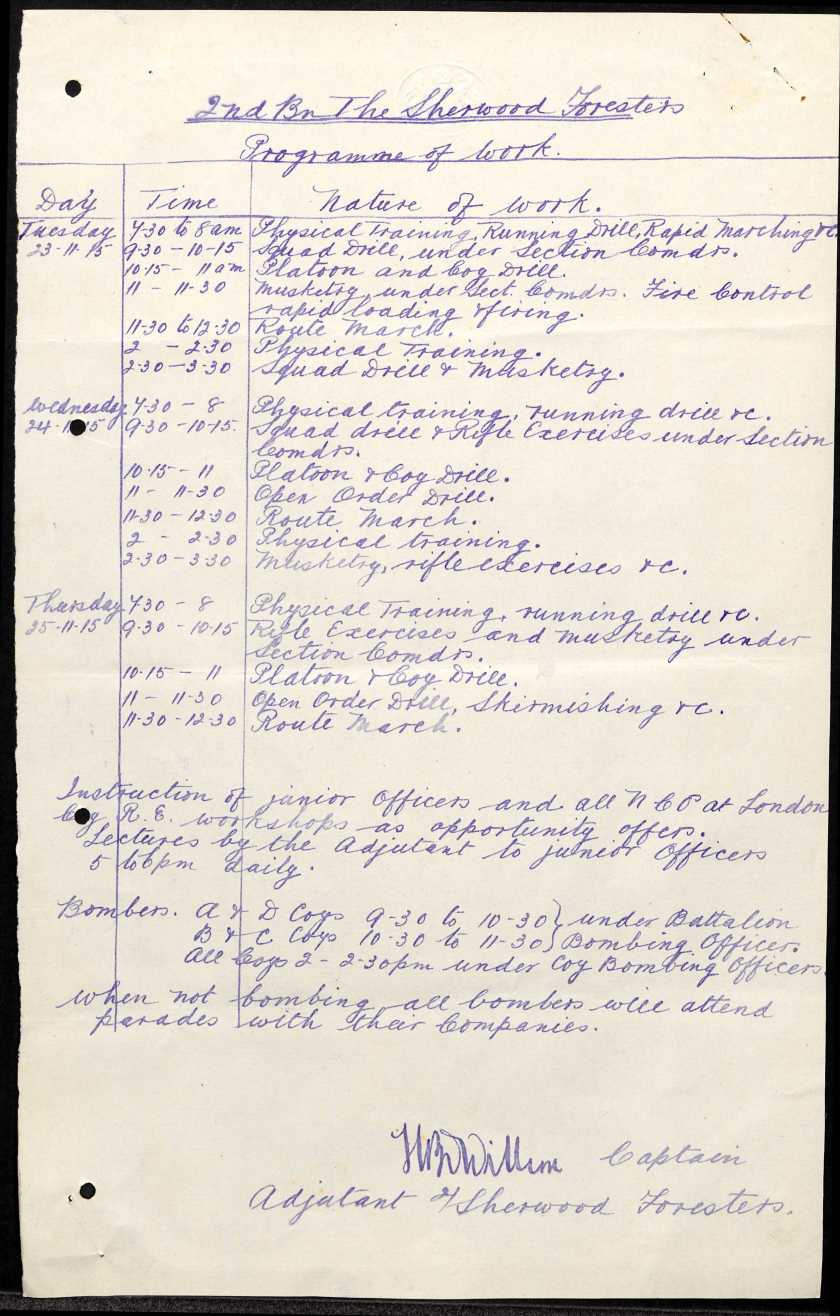 2nd Bn The Sherwood Foresters
Programme of work.
Day Time Nature of work.
Tuesday 7.30 to 8 am Physical Training, Running Drill, Rapid Marching &c
23-11-15 9-30 - 10-15 Squad Drill, under Section Comdrs.
10.15 - 11 am Platoon and Coy Drill.
11 - 11-30 Musketry, under Sect. Comdrs. Fire Control
rapid loading & firing.
11-30 to 12-30 Route March.
2 - 2-30 Physical Training.
2-30 - 3-30 Squad Drill & Musketry.
Wednesday 7-30 - 8 Physical training, running drill &c.
24-11-15 9-30 - 10-15. Squad drill & Rifle Exercises under Section
Comdrs.
10.15 - 11 Platoon & Coy Drill.
11 - 11-30 Open Order Drill.
11-30 - 12-30 Route March.
2 - 2-30 Physical training.
2-30 - 3-30 Musketry, rifle exercises &c.
Thursday 7-30 - 8 Physical Training, running drill &c.
25-11-15 9-30 - 10-15 Rifle Exercises and Musketry under
Section Comdrs.
10.15 - 11 Platoon & Coy Drill.
11 - 11-30 Open Order Drill, Skirmishing &c.
11-30 - 12-30 Route March.
Instruction of junior Officers and all N C O at London
Coy R.E. workshops as opportunity offers.
Lectures by the Adjutant to junior Officers
5 to 6 pm daily.
Bombers. A & D Coys 9-30 to 10-30 } under Battalion
B & C Coys 10.30 to 11-30 } Bombing Officer.
All Coys 2 - 2-30pm under Coy Bombing Officers.
When not bombing all bombers will attend
parades with their Companies.
Captain
Adjutant 2/Sherwood Foresters.